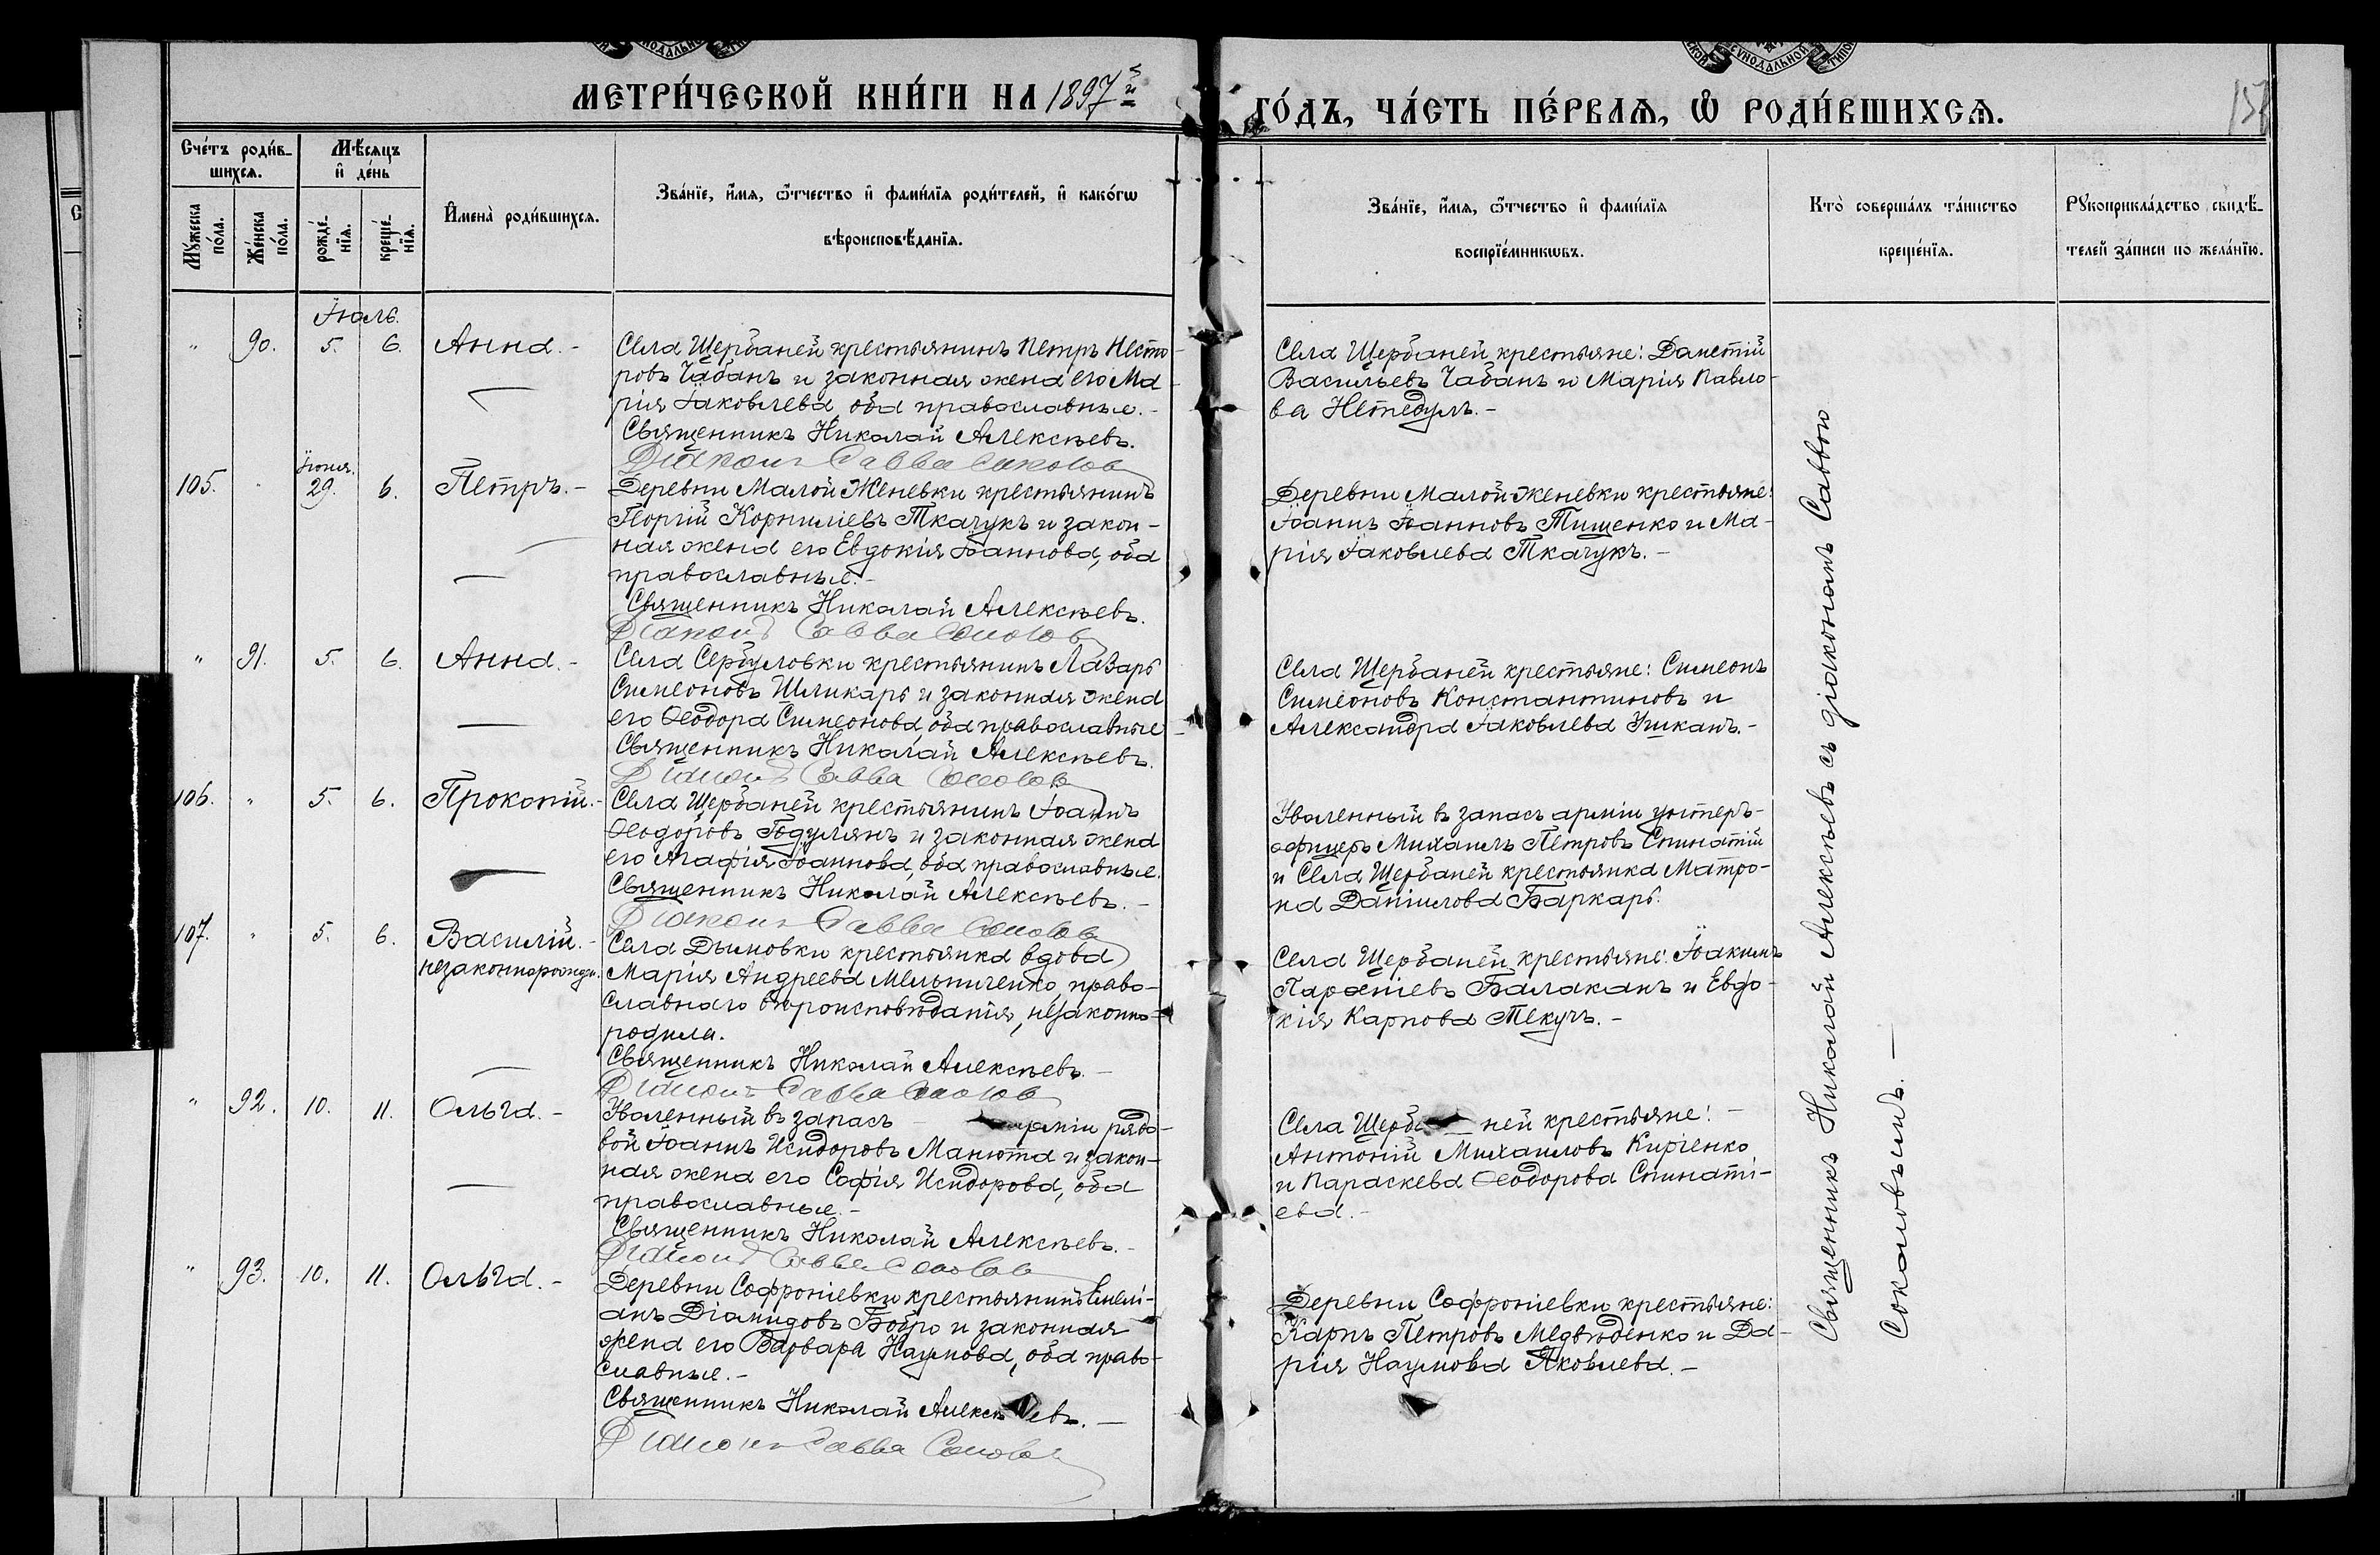 МЕТРИ́ЧЕСКОЙ КНИ́ГИ НА 1897й
ГО́ДЪ, ЧА́СТЬ ПЕ́РВАѦ, Ѡ҆ РОДИ́ВШИХСѦ.
Сче́тъ роди́в-
шихсѧ.
Мѣ́сяцъ
и҆ де́нь
Мꙋ́жеска
по́ла.
Же́нска
по́ла.
рожде́-
нїѧ.
креще́-
нїѧ.
И҆мена̀ роди́вшихсѧ.
Зва́нїе, и҆́мѧ, ѻ҆́тчество и҆ фами́лїѧ роди́телей, и҆ како́гѡ
вѣроисповѣ́данїѧ.
Зва́нїе, и҆́мѧ, ѻ҆́тчество и҆ фами́лїѧ
воспрїе́мникѡвъ.
Кто̀ соверша́лъ та́инство
креще́нїѧ.
Рꙋкоприкла́дство свидѣ́-
телей за́писи по жела́нїю.
Іюль.
" 90. 5. 6. Анна.-
Села Щербаней крестьянинъ Петръ Несто-
ровъ Чабанъ и законная жена его Ма-
рія Іаковлева, оба православные.-
Священникъ Николай Алексѣевъ.
Діаконъ Савва Соколов
Села Щербаней крестьяне:
Васильевъ Чабанъ и Марія Павло-
ва Непедулъ.-
Іюня.
105. " 29. 6. Петръ.-
Деревни Малой Женевки крестьянинъ
Георгій Корниліевъ Ткачукъ и закон-
ная жена его Евдокія Іоаннова, оба
православные.-
Священникъ Николай Алексѣевъ.
Діаконъ Савва Соколов
Деревни Малой Женевки крестьяне:
Іоаннъ Іоанновъ Тищенко и Ма-
рія Іаковлева Ткачукъ.-
" 91. 5. 6. Анна.-
Села Сербуловки крестьянинъ Лазарь
Симеоновъ Шликарь и законная жена
его Ѳеодора Симеонова, оба православные
Священникъ Николай Алексѣевъ.
Діаконъ Савва Соколов
Села Щербаней крестьяне: Симеонъ
Симеоновъ Константиновъ и
Александра Іаковлева Ушканъ.-
106. " 5. 6. Прокопій.-
Села Щербаней крестьянинъ Іоаннъ
Ѳеодоровъ Годулянъ и законная жена
его Агафія Іоаннова, оба православные.
Священникъ Николай Алексѣевъ.-
Діаконъ Савва Соколов
Уволенный въ запасъ арміи унтеръ-
офицеръ Михаилъ Петровъ Спинатій
и Села Щербаней крестьянка Матро-
на Даніилова Баркарь.
107. " 5. 6. Василій.-
незаконнорожден.
Села Дымовки крестьянка вдова
Марія Андреева Мельниченко, право-
славнаго вѣроисповѣданія, незаконно-
родила.
Священникъ Николай Алексѣевъ.-
Діаконъ Савва Соколов
Села Щербаней крестьяне: Іоакимъ
Балаканъ и Евдо-
кія Карпова Текучъ.-
" 92. 10. 11. Ольга.-
Уволенный въ запасъ арміи рядо-
вой Іоаннъ Исидоровъ Манюта и закон-
ная жена его Софія Исидорова, оба
православные.-
Священникъ Николай Алексѣевъ.-
Діаконъ Савва Соколов
Села Щерба ней крестьяне:-
Антоній Михаиловъ Киріенко
и Параскева Ѳеодорова Спинаті-
ева.-
" 93. 10. 11. Ольга.-
Деревни Софроніевки крестьянинъ Емелі-
анъ Діамидовъ Бобро и законная
жена его Варвара Наумова, оба право-
славные.-
Священникъ Николай Алексѣевъ.-
Діаконъ Савва Соколов
Деревни Софроніевки крестьяне:
Карпъ Петровъ Медвѣденко и Да-
рія Наумова Яковлева.-
Священникъ Николай Алексѣевъ съ діакономъ Саввою
Соколовымъ.-